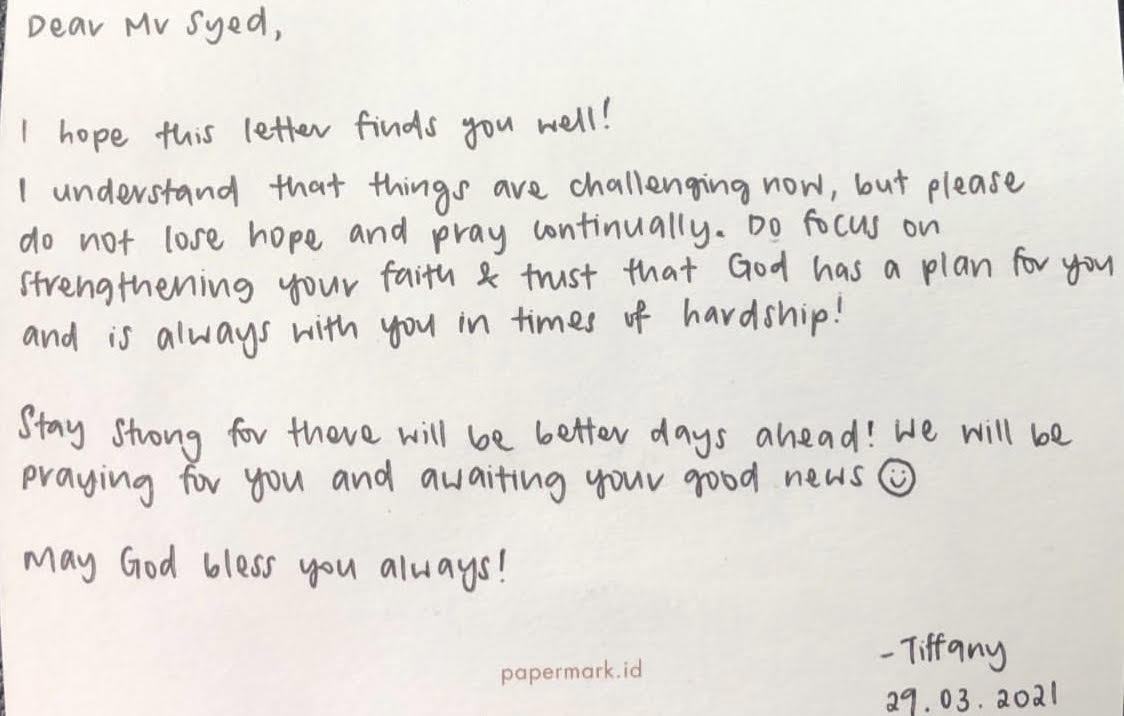 Dear Mr Syed,
I hope this letter finds you well!
I understand that things are challenging now, but please
do not lose hope and pray continually. Do focus on
strengthening your faith & trust that God has a plan for you
and is always with you in times of hardship!
Stay strong for there will be better days ahead! We will be
praying for you and awaiting your good news ☺
May God bless you always!
- Tiffany
papermark.id
29.03.2021